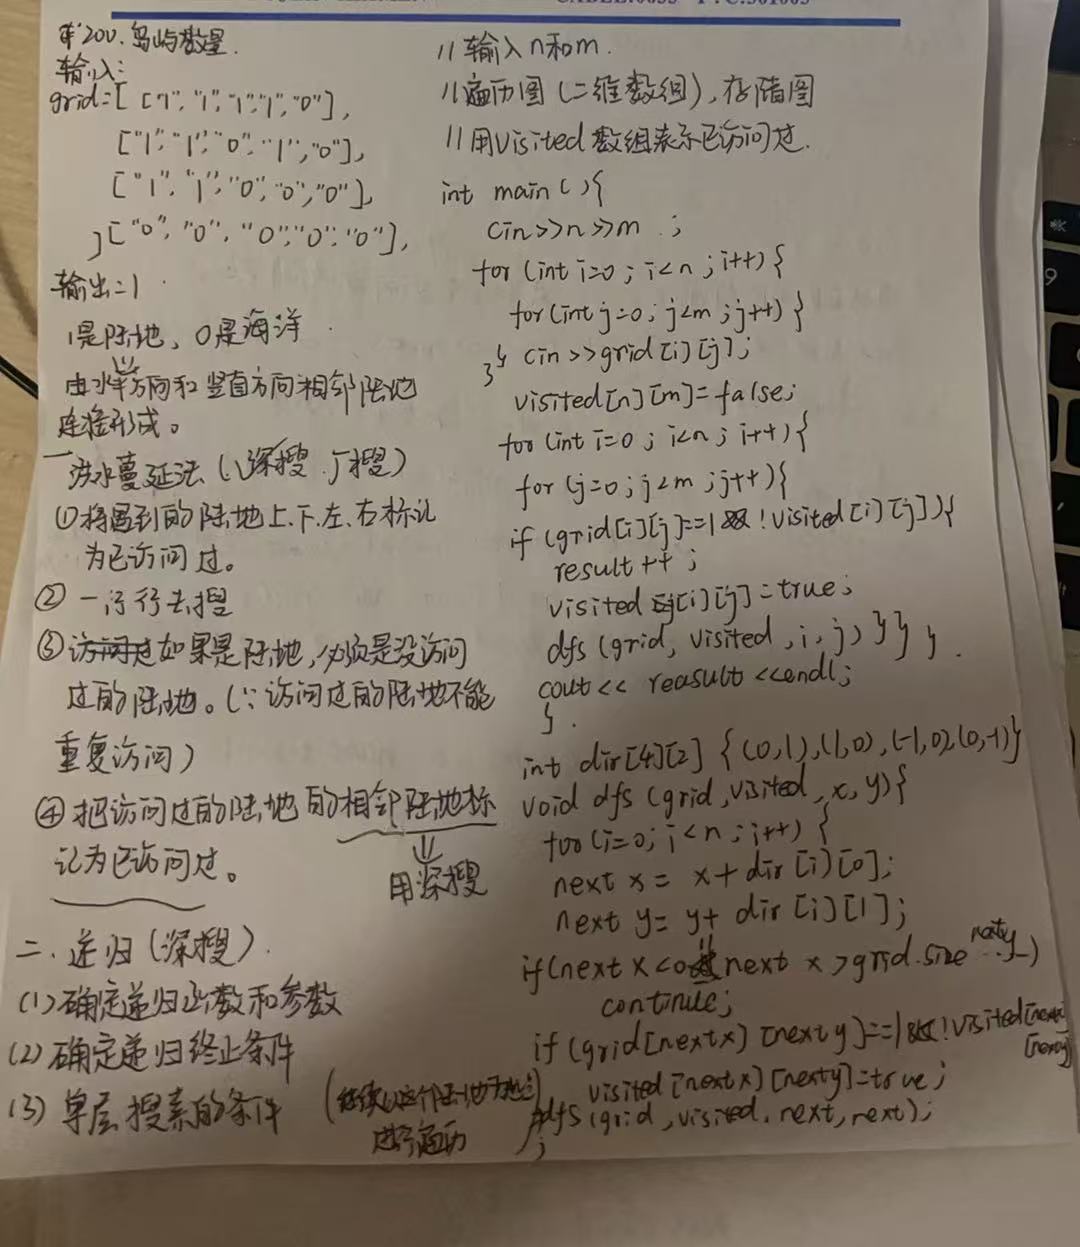 #200.岛屿数量.
输入:
grid=[ ["1","1","1","1","0"],
["1","1","0","1","0"],
["1","1","0","0","0"],
]["0","0","0","0","0"],
输出=1
1是陆地, 0是海洋.
由水平方向和竖直方向相邻陆地
连接形成。
一
洪水蔓延法(深搜.广搜)
①将遇到的陆地上.下.左.右标记
为已访问过。
②一行行去搜
③如果是陆地,必须是没访问
过的陆地。(∵访问过的陆地不能
重复访问)
④把访问过的陆地的相邻陆地标
记为已访问过。
⇓
用深搜
二.递归(深搜).
(1)确定递归函数和参数
(2)确定递归终止条件
(3)单层搜索的条件
进行遍历
//输入n和m.
//遍历图(二维数组),存储图
//用visited数组表示已访问过.
int main(){
cin>>n>>m.;
for(int i=0; i<n; i++){
for(int j=0; j<m; j++){
}} cin>>grid[i][j];
visited[n][m]=false;
for(int i=0; i<n; i++){
for(j=0; j<m; j++){
if(grid[i][j]==1&&!visited[i][j]){
result++;
visited[i][j]=true;
dfs(grid, visited, i, j)}}}.
cout<< reasult <<endl;
}.
int dir[4][2] {(0,1),(1,0),(-1,0),(0,-1)}
void dfs(grid,visited,x,y){
for(i=0; i<n; i++){
next x= x+dir[i][0];
next y= y+ dir[i][1];
if(next x<0||next x>grid.size nexty...)
continue;
if(grid[next x][next y]==1&&!visited[nextx]
[nexty]
visited[nextx][nexty]=true;
dfs(grid,visited,next,next);
}